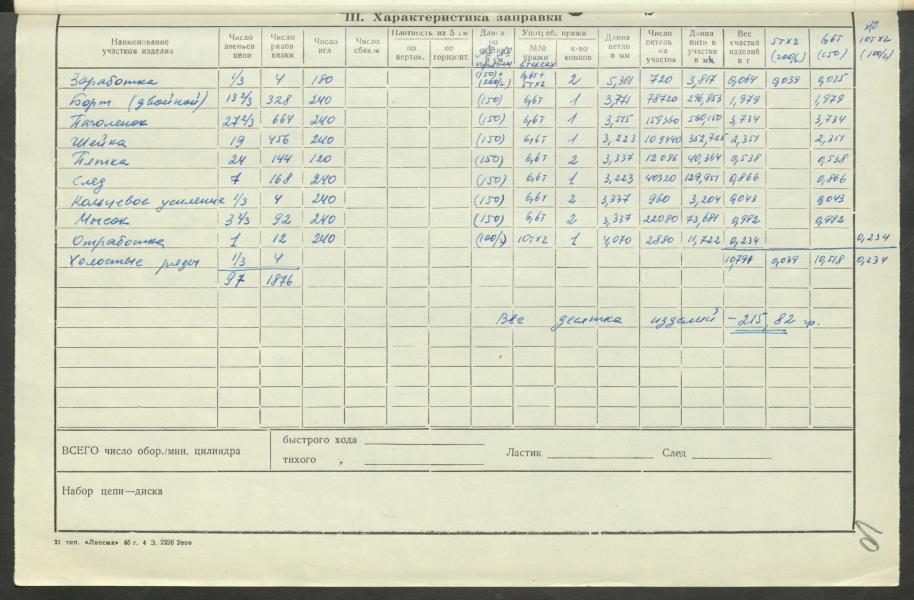 III. Характеристика заправки
Наименование участков изделия | Число звеньев цепи | Число рядов вязки | Число игл | Число сближ | Плотность на 5 см по вертик. | по горизонт. | Длина | Употреб. пряжи №№ пряжи | к-во концов | Длина петли в мм | Число петель на участок | Длина нити в участке в м | Вес участка изделия в г | 5тх2 (200/2) | 6,6т (150) | х/б 10тх2 (100/2)
Заработка 1/3 4 180 (150)+(200/2) 6,6т+5тх2 2 5,301 720 3,817 0,064 0,039 0,025
Борт (двойной) 13 2/3 328 240 (150) 6,6т 1 3,771 78720 296,853 1,979 1,979
Паголенок 27 2/3 664 240 (150) 6,6т 1 3,515 159360 560,150 3,734 3,734
Шейка 19 456 240 (150) 6,6т 1 3,223 109440 352,725 2,351 2,351
Пятка 24 144 120 (150) 6,6т 2 3,337 12096 40,364 0,538 0,538
След 7 168 240 (150) 6,6т 1 3,223 40320 129,951 0,866 0,866
Кольцевое усиление 1/3 4 240 (150) 6,6т 2 3,337 960 3,204 0,043 0,043
Мысок 3 2/3 92 240 (150) 6,6т 2 3,337 22080 73,681 0,982 0,982
Отработка 1 12 240 (100/2) 10тх2 1 4,070 2880 11,722 0,234 0,234
Холостые ряды 1/3 4 10,791 0,039 10,518 0,234
97 1876
Вес десятка изделий - 215,82 гр.
ВСЕГО число обор./мин. цилиндра
быстрого хода
тихого „
Ластик
След
Набор цепи—диска
21 тип. «Лиесма» 65 г. 4 З. 2298 2000